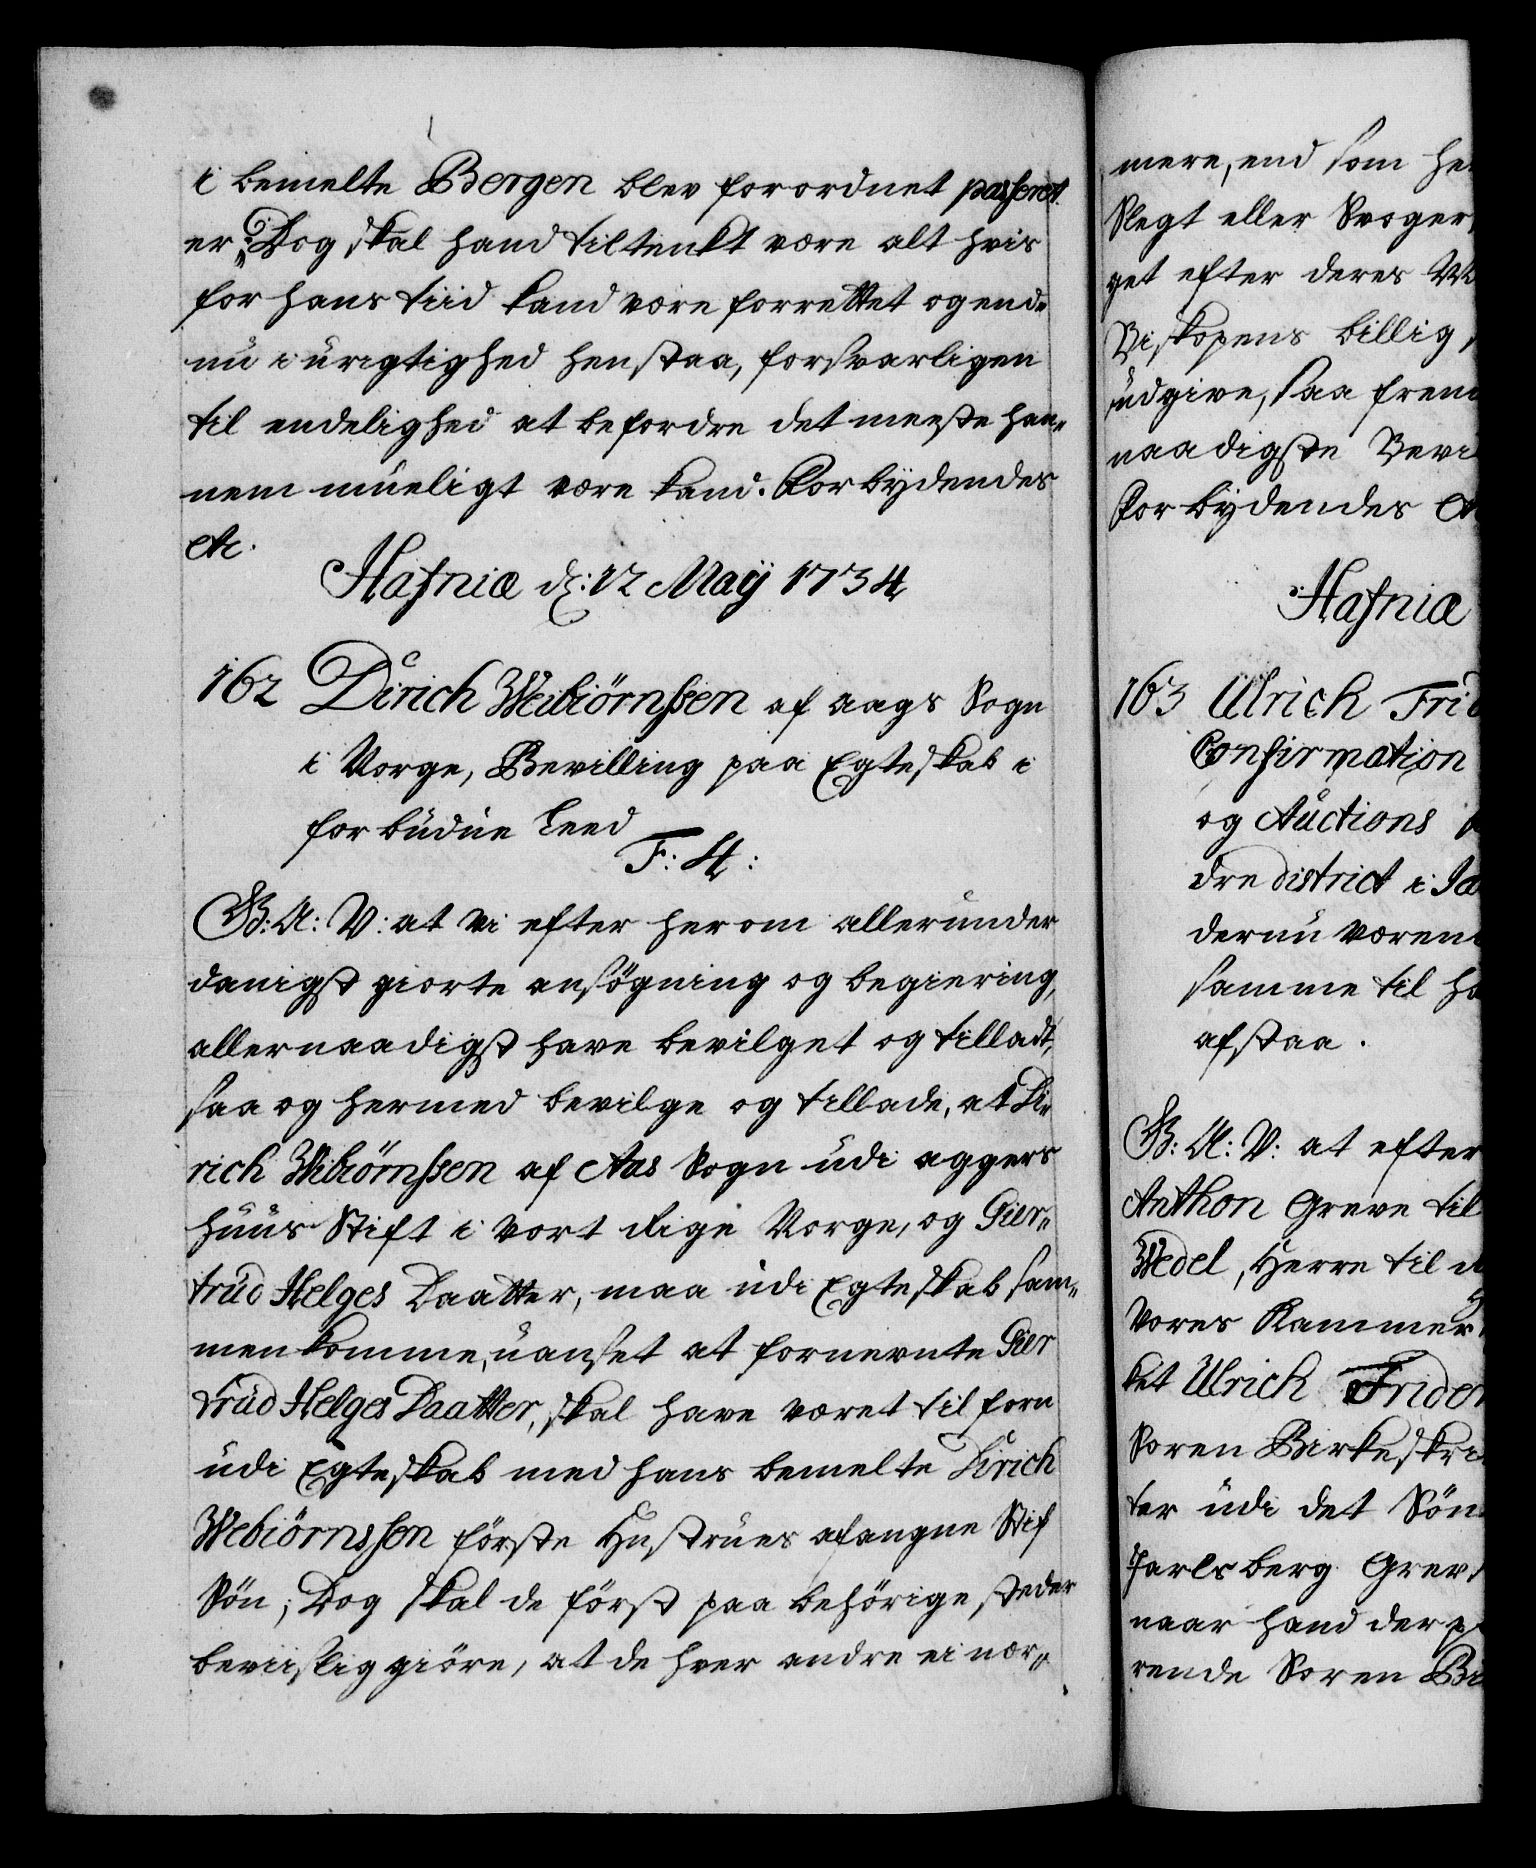 i bemelte Bergen blev forordnet passeret
er, Dog skal hand tiltenkt være alt hvis
for hans tiid kand være forrettet og end-
nu i urigtighed henstaa, forsvarligen
til endelighed at befordre det meeste han-
nem mueligt være kand. Forbydendes
etc.
Hafniæ d: 12 Maÿ 1734
162 Dirich Weibiörnssen af aags Sogn
i Norge, Bevilling paa Egteskab i
forbudne Leed
F: 4:
G: A: V: at Vi efter herom allerunder
danigst giorte ansögning og begiering,
allernaadigst have bevilget og tilladt,
saa og hermed bevilge og tillade, at Di-
rich Wibiörnssen af Aas Sogn udi agger
huus Stift i vort Rige Norge, og Gier-
trud Helges Daatter, maa udi Egteskab sam-
menkomme, uanset at fornevnte Gier
trud Helges Daatter, skal have været tilforn
udi Egteskab med hans bemelte Dirich
Webiörnssen förste Hustrues afgangne Stif
Sön; Dog skal de först paa behörige steder
beviislig giöre, at de hver andre ei nær-
mere, end som
Slegt eller Svoger
get efter deres
Biskopens billig
udgive, saa frem
naadigste Bevil
Forbydendes
Hafniæ
163 Ulrich Frid
Confirmation
og Auctions
dre district i
dernu væren
samme til
afstaa.
G: A: V: at efter
Anthon Greve til
Wedel, Herre til
Vores Kammer
ket Ulrich Frider
Soren Birkeskri
ter udi det Sön
Jarlsberg Grev
naar hand der
rende Soren Bi